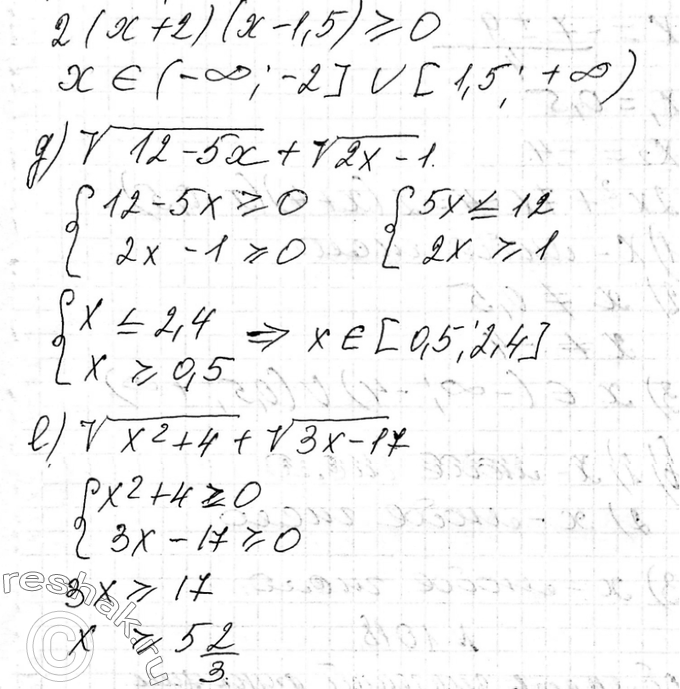 2(x+2)(x-1,5)≥0
x∈(-∞;-2]∪[1,5;+∞)
д) √(12-5x)+√(2x-1).
{12-5x≥0 {5x≤12
2x-1≥0 2x≥1
{x≤2,4 ⇒ x∈[0,5;2,4]
x≥0,5
е) √(x²+4)+√(3x-17)
{x²+4≥0
3x-17≥0
3x≥17
x≥5 2/3.
reshak.ru
©